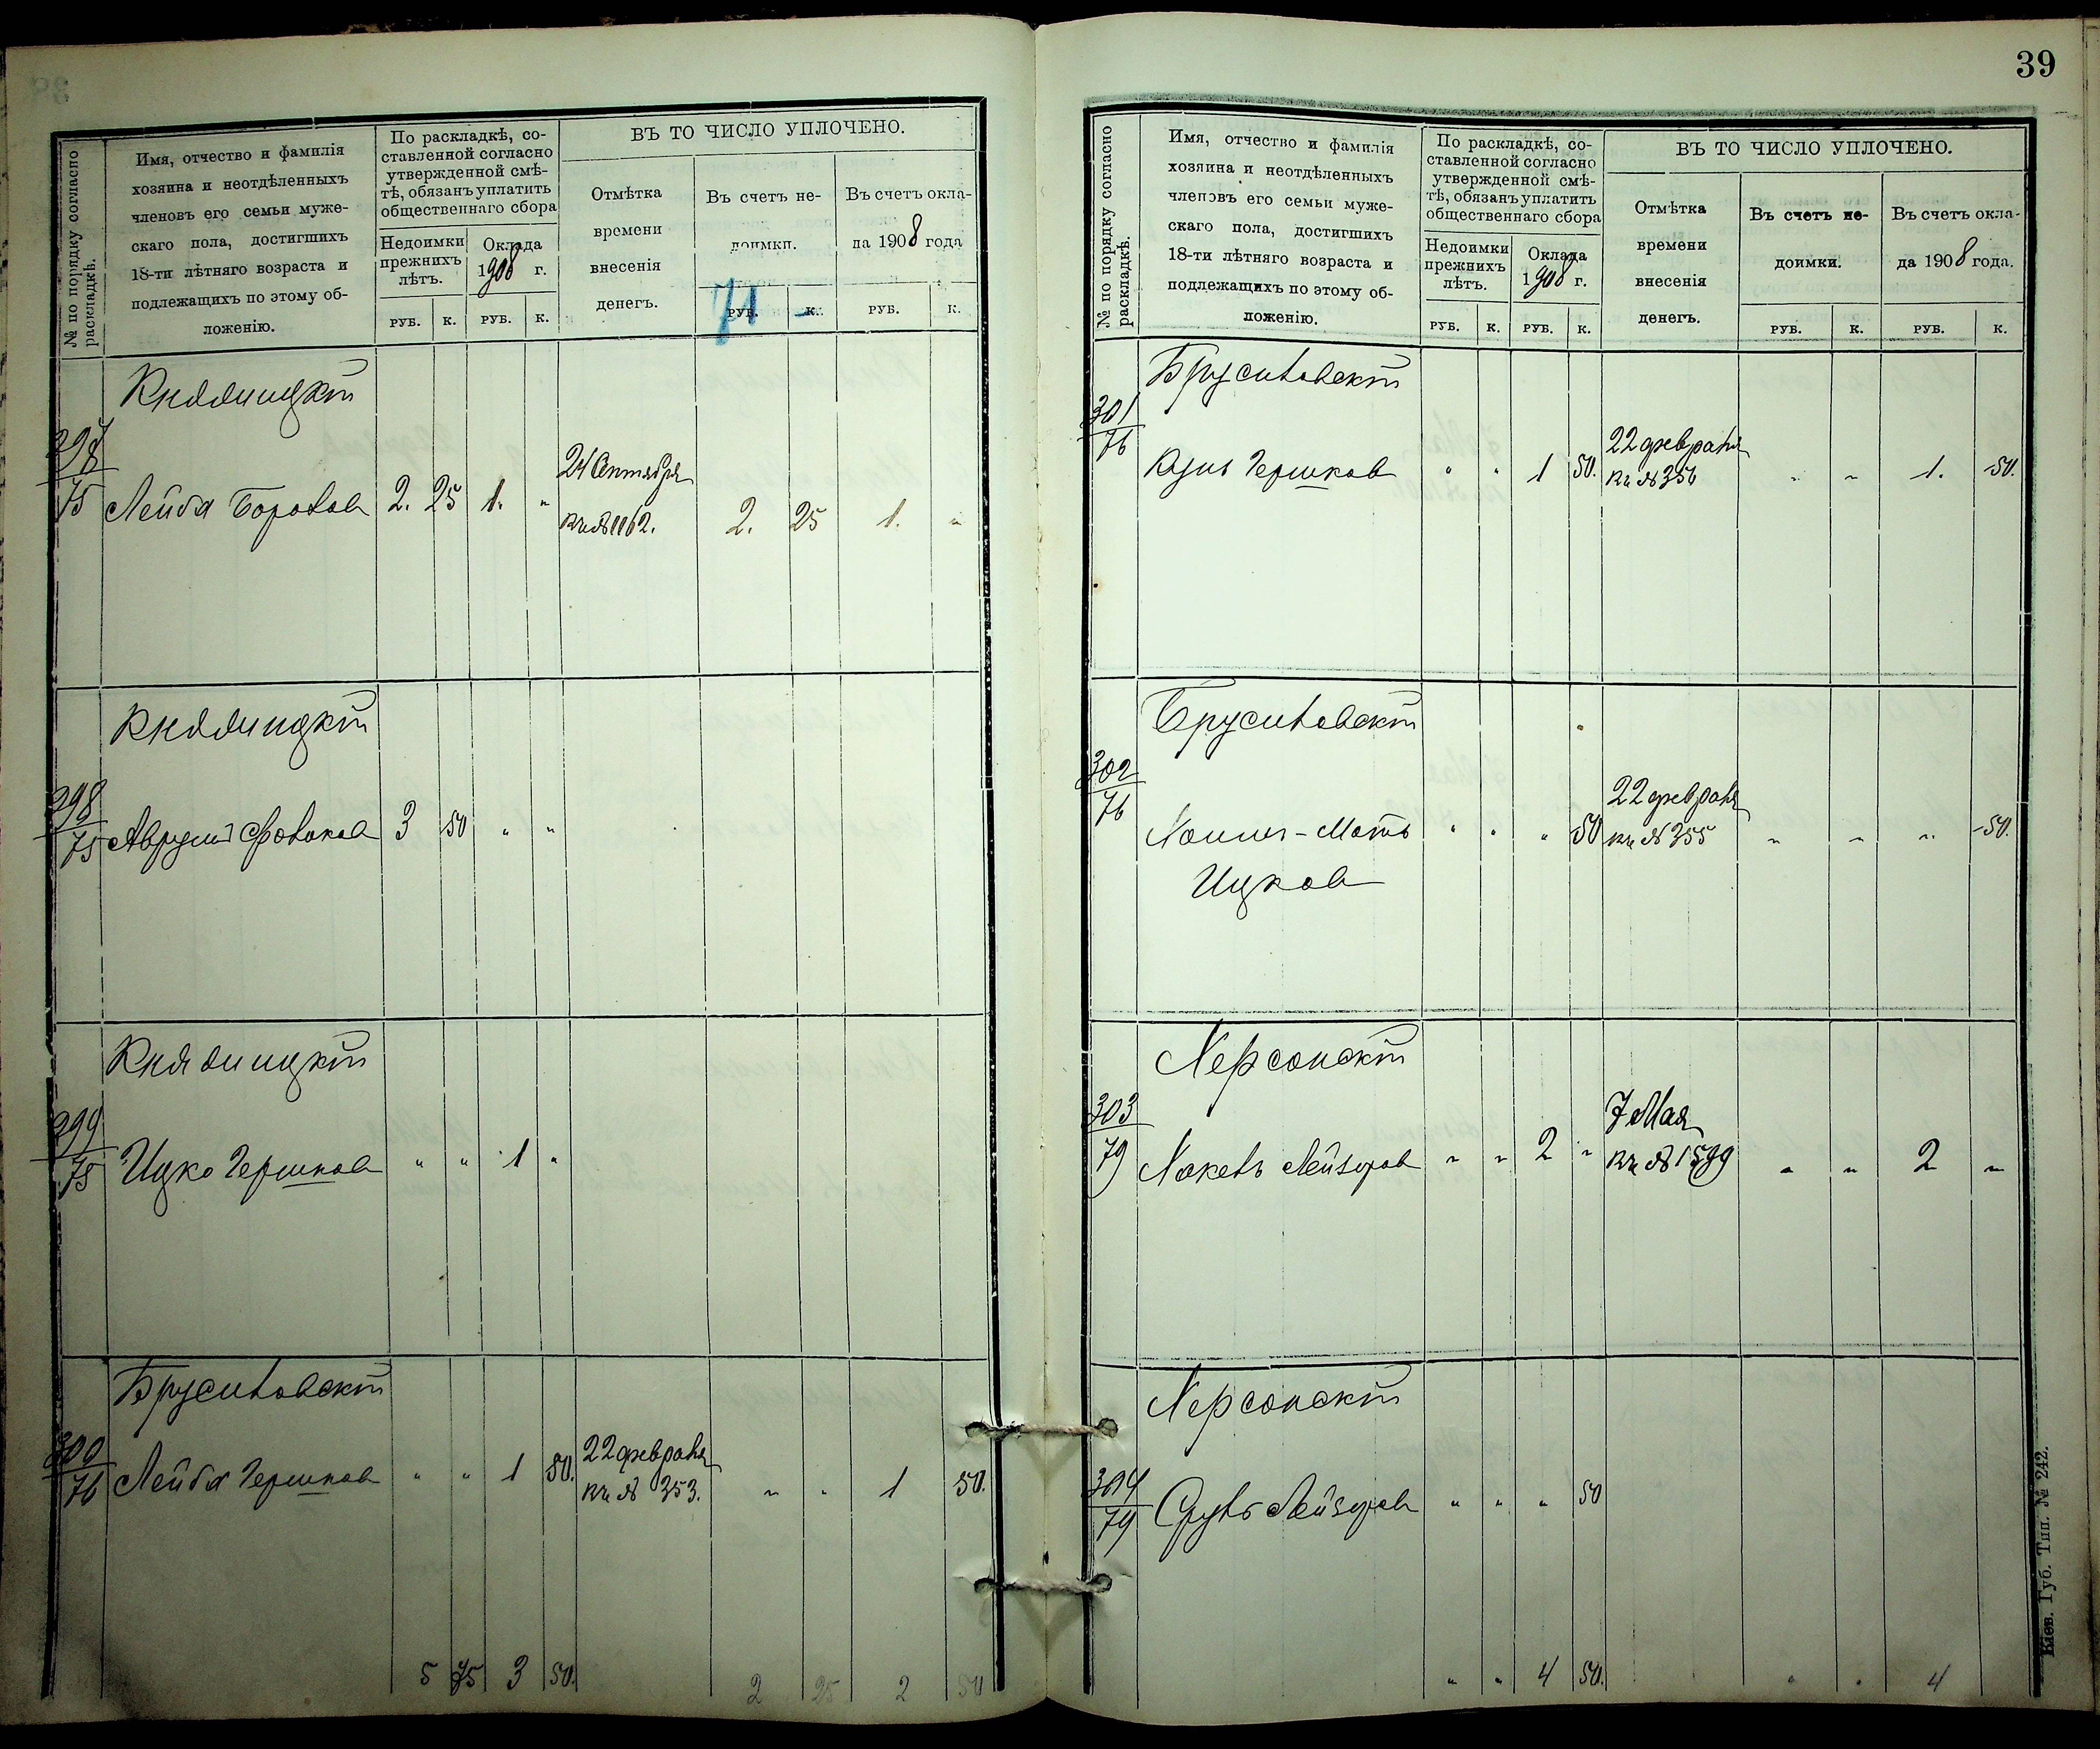 № по порядку согласно раскладкѣ.
Имя, отчество и фамилія
хозяина и неотдѣленныхъ
членовъ его семьи муже-
скаго пола, достигшихъ
18-ти лѣтняго возраста и
подлежащихъ по этому об-
ложенію.
По раскладкѣ, со-
ставленной согласно
утвержденной смѣ-
тѣ, обязанъ уплатить
общественнаго сбора
Недоимки
прежнихъ
лѣтъ.
Оклада
1908 г.
РУБ. К. РУБ. К.
ВЪ ТО ЧИСЛО УПЛОЧЕНО.
Отмѣтка
времени
внесенія
денегъ.
Въ счетъ не-
доимки.
Въ счетъ окла-
да 1908 года
71
РУБ. К. РУБ. К.
297
75
Лейба Борохов 2. 25 1. "
24 Сентября
кв № 1162. 2. 25 1. "
298
75
3 50 " "
299
75
Ицко Гершков " " 1 "
Брусиловскій
300
76
Лейба Гершков " " 1 50.
22 февраля
кв № 353. " " 1 50.
5 75 3 50. 2 25 2 50
39
№ по порядку согласно раскладкѣ.
Имя, отчество и фамилія
хозяина и неотдѣленныхъ
членовъ его семьи муже-
скаго пола, достигшихъ
18-ти лѣтняго возраста и
подлежащихъ по этому об-
ложенію.
По раскладкѣ, со-
ставленной согласно
утвержденной смѣ-
тѣ, обязанъ уплатить
общественнаго сбора
Недоимки
прежнихъ
лѣтъ.
Оклада
1908 г.
РУБ. К. РУБ. К.
ВЪ ТО ЧИСЛО УПЛОЧЕНО.
Отмѣтка
времени
внесенія
денегъ.
Въ счетъ не-
доимки.
Въ счетъ окла-
да 1908 года.
РУБ. К. РУБ. К.
Брусиловскій
301
76
Гершков " " 1 50.
22 февраля
кв № " " 1. 50.
Брусиловскій
302
76
Мотъ " " " 50
Ицков
22 февраля
кв № 355 " " " 50.
Херсонскій
303
79
Лейзоров " " 2 "
7 Мая
кв № 1599 " " 2 "
Херсонскій
304
79
Сруль Лейзоров " " " 50
" " 4 50. " " 4
Кіев. Губ. Тип. № 242.